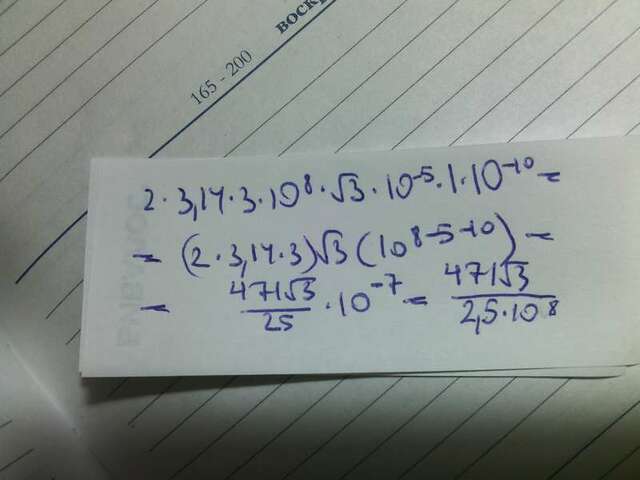 ВОСКР
165 - 200
2 · 3,14 · 3 · 10⁸ · √3 · 10⁻⁵ · 1 · 10⁻¹⁰ =
= (2 · 3,14 · 3)√3 (10⁸⁻⁵⁻¹⁰) =
= 471√3/25 · 10⁻⁷ = 471√3/2,5·10⁸